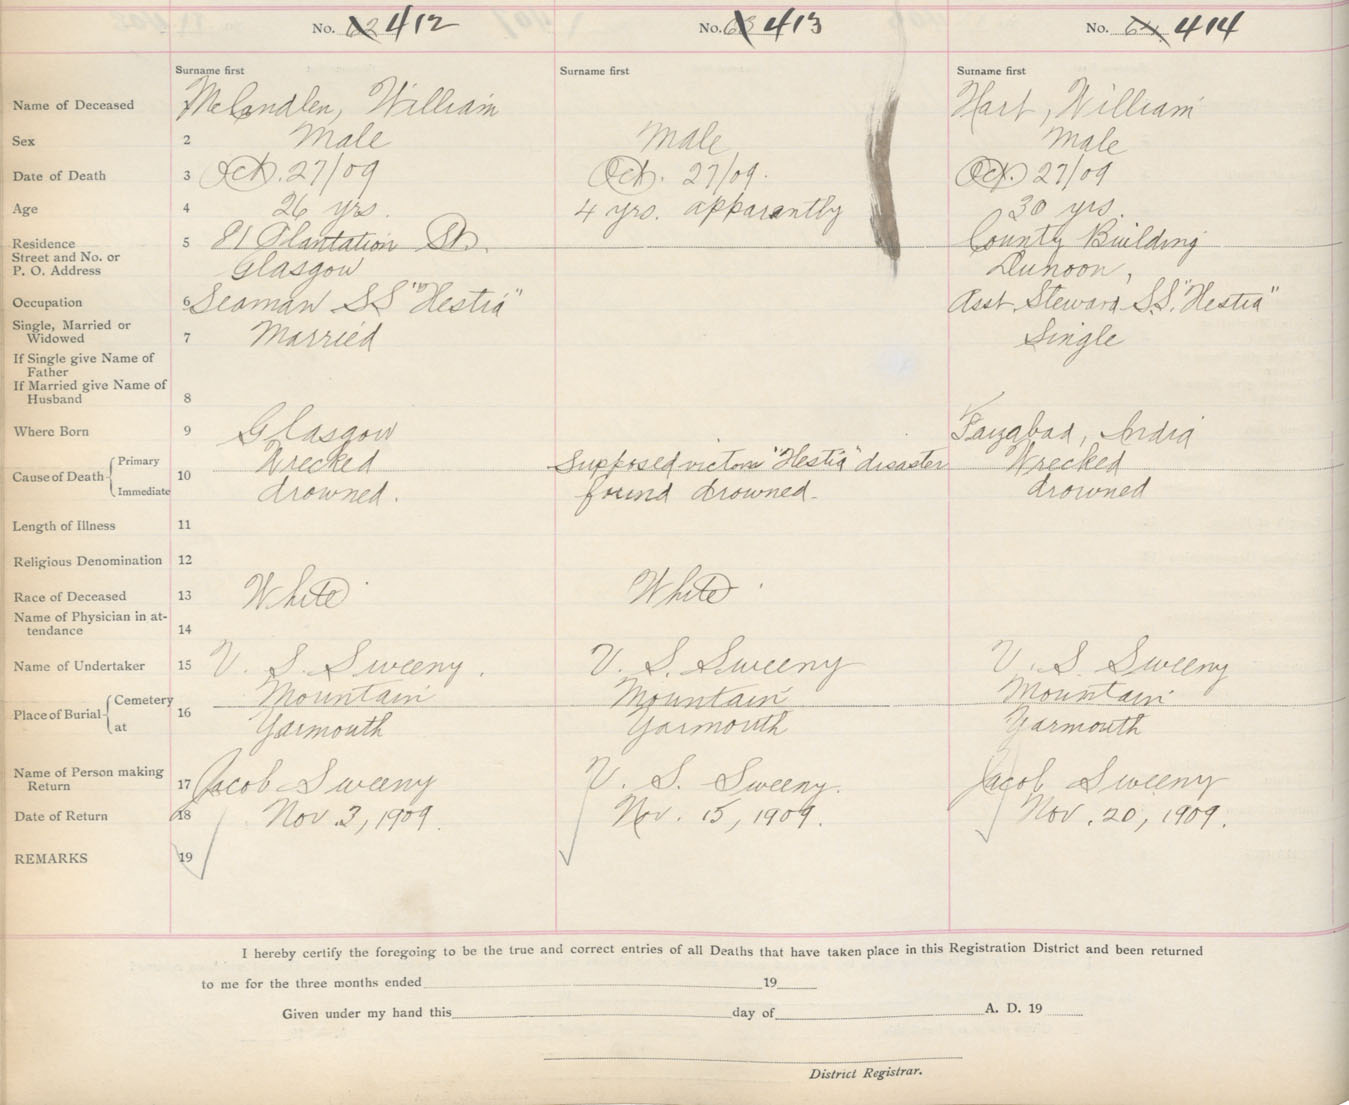 No. 62 412 No. 63 413 No. 64 414
Surname first Surname first Surname first
Name of Deceased McCandlen, William Hart, William
Sex 2 Male Male Male
Date of Death 3 Oct. 27/09 Oct. 27/09. Oct. 27/09
Age 4 26 yrs. 4 yrs. apparantly 30 yrs.
Residence 5 81 Plantation St. County Building
Street and No. or
P. O. Address Glasgow Dunoon,
Occupation 6 Seaman SS "Hestia" Asst. Steward S.S. "Hestia"
Single, Married or
Widowed 7 Married Single
If Single give Name of
Father
If Married give Name of
Husband 8
Where Born 9 Glasgow Fayzabad, India
Cause of Death Primary 10 Wrecked Supposed victim "Hestia" disaster Wrecked
Immediate drowned. found drowned. drowned
Length of Illness 11
Religious Denomination 12
Race of Deceased 13 White White
Name of Physician in at-
tendance 14
Name of Undertaker 15 V. S. Sweeny. V. S. Sweeny V. S. Sweeny
Place of Burial Cemetery 16 Mountain Mountain Mountain
at Yarmouth Yarmouth Yarmouth
Name of Person making
Return 17 Jacob Sweeny V. S. Sweeny. Jacob Sweeny
Date of Return 18 Nov. 3, 1909. Nov. 15, 1909. Nov. 20, 1909.
REMARKS 19
I hereby certify the foregoing to be the true and correct entries of all Deaths that have taken place in this Registration District and been returned
to me for the three months ended 19
Given under my hand this day of A. D. 19
District Registrar.